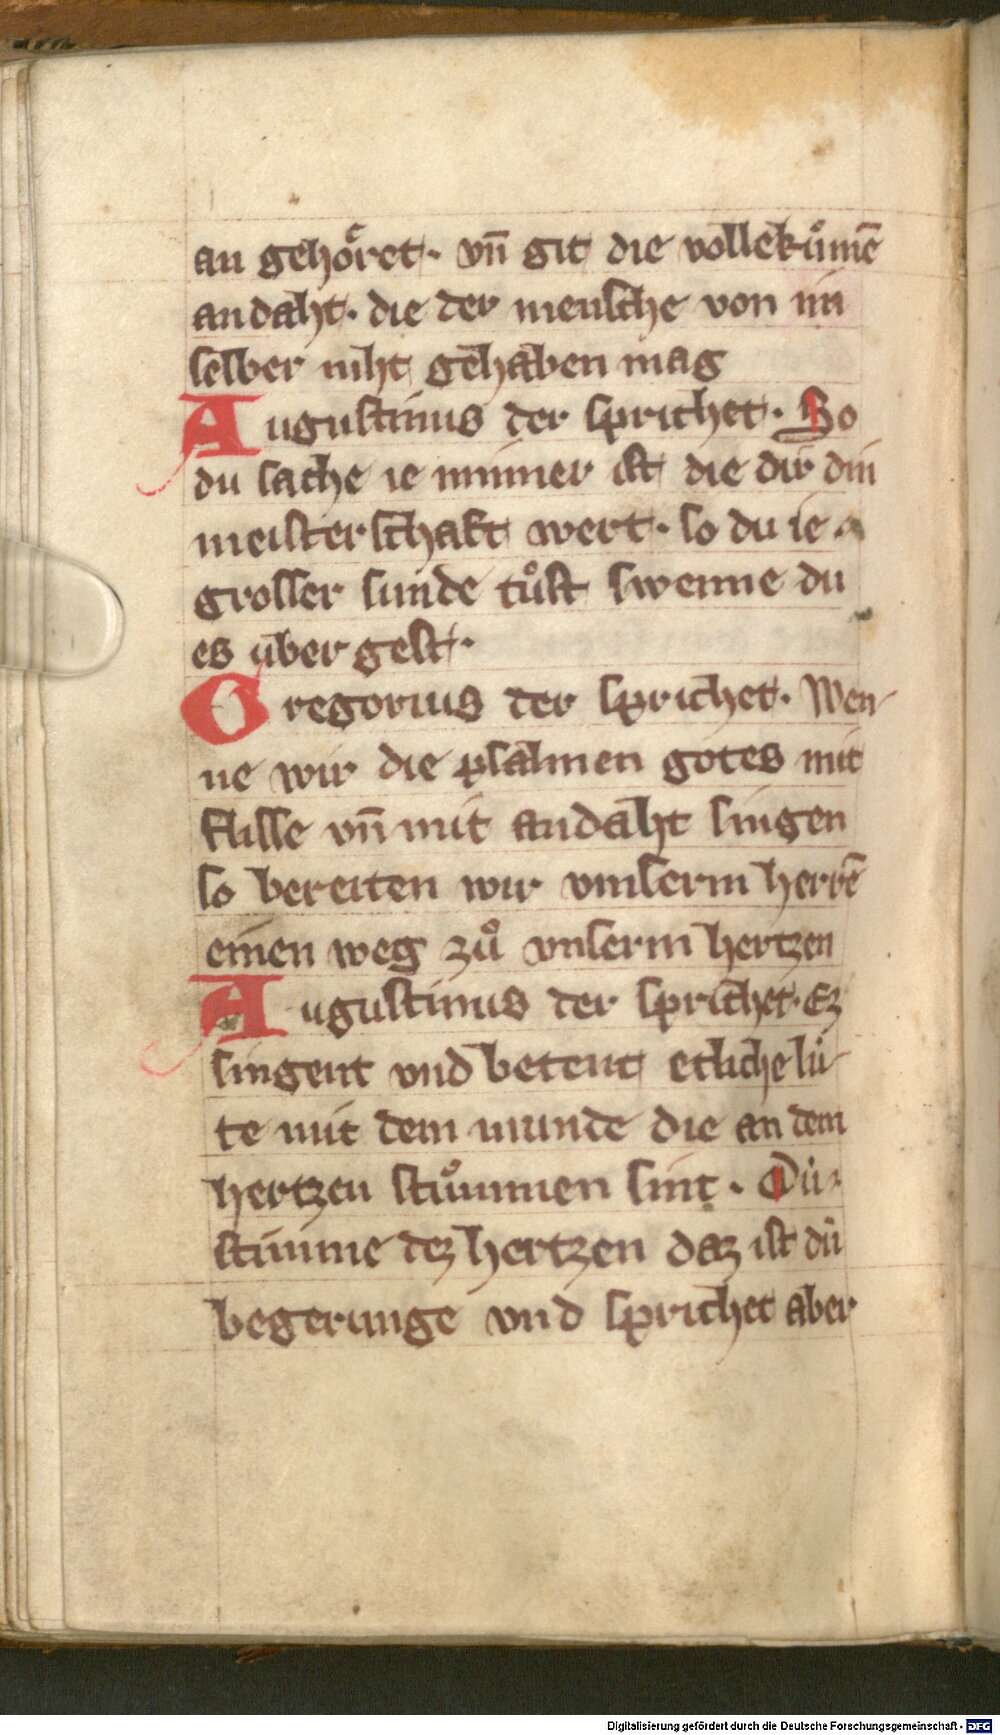 an gehoͤret · vn̄ git die vollekuͦmē
andaht · die der mensche von im
selber niht gehaben mag
Augustinus der sprichet · So
du sache ie minner ist die dir din
meisterschaft wert · so du ie
grosser sunde tuͦst swenne du
es uber gest ·
Gregorius der sprichet · Wen-
ne wir die psalmen gotes mit
flisse vn̄ mit andaht singen
so bereiten wir vnserm herrē
einen weg zuͦ vnserm hertzen
Augustinus der sprichet · Ez
singent vnd betent etliche lu-
te mit dem munde die an dem
hertzen stuͦmmen sint · Du
stimme dez hertzen daz ist du
begerunge vnd sprichet aber
Digitalisierung gefördert durch die Deutsche Forschungsgemeinschaft - DFG